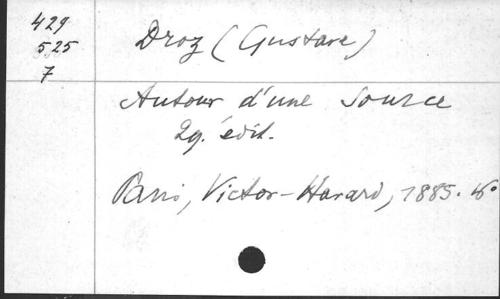 429
525
7
Droz (Gustave)
Autour d'une source
29. édit.
Paris, Victor-Havard, 1885.